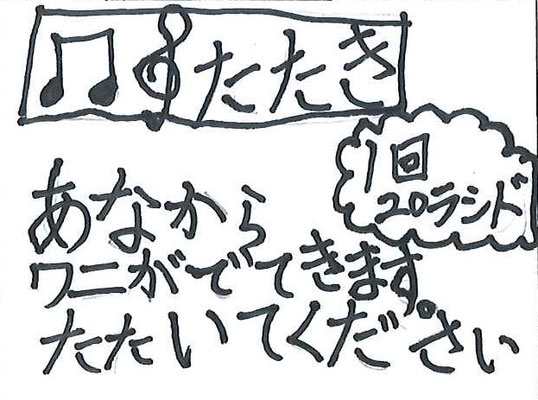 ♫𝄞たたき
1回
20ラシド
あなから
ワニがでてきます。
たたいてください